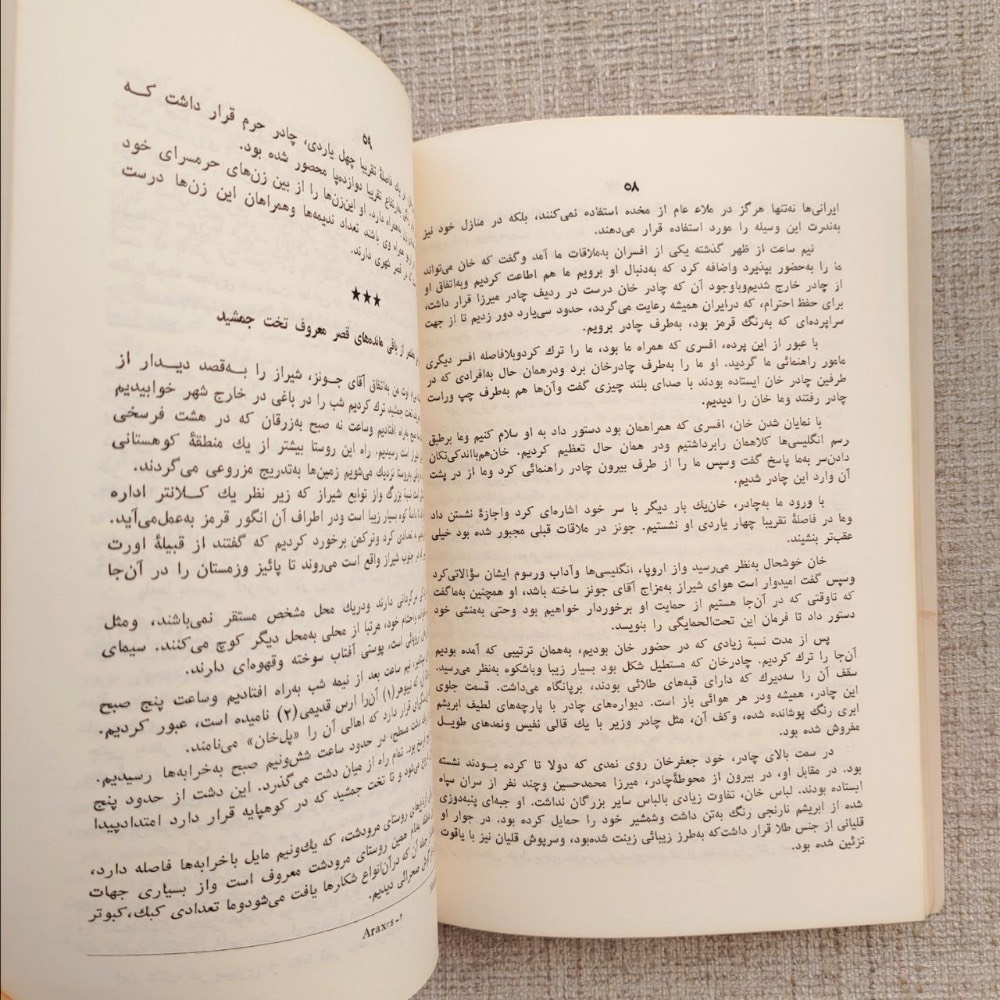 ۵۸
ایرانی‌ها نه‌تنها هرگز در ملاء عام از مخده استفاده نمی‌کنند، بلکه در منازل خود نیز
به‌ندرت این وسیله را مورد استفاده قرار می‌دهند.
نیم ساعت از ظهر گذشته یکی از افسران به‌ملاقات ما آمد وگفت که خان می‌تواند
ما را به‌حضور بپذیرد واضافه کرد که به‌دنبال او برویم ما هم اطاعت کردیم وبه‌اتفاق او
از چادر خارج شدیم‌وباوجود آن که چادر خان درست در ردیف چادر میرزا قرار داشت،
برای حفظ احترام، که‌درایران همیشه رعایت می‌گردد، حدود سی‌یارد دور زدیم تا از جهت
سراپرده‌ای که به‌رنگ قرمز بود، به‌طرف چادر برویم.
با عبور از این پرده، افسری که همراه ما بود، ما را ترك کردوبلافاصله افسر دیگری
مامور راهنمائی ما گردید. او ما را به‌طرف چادرخان برد ودرهمان حال به‌افرادی که در
طرفین چادر خان ایستاده بودند با صدای بلند چیزی گفت وآن‌ها هم به‌طرف چپ وراست
چادر رفتند وما خان را دیدیم.
با نمایان شدن خان، افسری که همراهمان بود دستور داد به او سلام کنیم وما برطبق
رسم انگلیسی‌ها کلاهمان رابرداشتیم ودر همان حال تعظیم کردیم. خان‌هم‌بااندکی‌تکان
دادن‌سر به‌ما پاسخ گفت وسپس ما را از طرف بیرون چادر راهنمائی کرد وما از در پشت
آن وارد این چادر شدیم.
با ورود ما به‌چادر، خان‌یك بار دیگر با سر خود اشاره‌ای کرد واجازهٔ نشستن داد
وما در فاصلهٔ تقریبا چهار یاردی او نشستیم. جونز در ملاقات قبلی مجبور شده بود خیلی
عقب‌تر بنشیند.
خان خوشحال به‌نظر می‌رسید واز اروپا، انگلیسی‌ها وآداب ورسوم ایشان سؤالاتی‌کرد
وسپس گفت امیدوار است هوای شیراز به‌مزاج آقای جونز ساخته باشد، او همچنین به‌ماگفت
که تاوقتی که در آن‌جا هستیم از حمایت او برخوردار خواهیم بود وحتی به‌منشی خود
دستور داد تا فرمان این تحت‌الحمایگی را بنویسد.
پس از مدت نسبة زیادی که در حضور خان بودیم، به‌همان ترتیبی که آمده بودیم
آن‌جا را ترك کردیم. چادرخان که مستطیل شکل بود بسیار زیبا وباشکوه به‌نظر می‌رسید.
سقف آن را سه‌دیرك که دارای قبه‌های طلائی بودند، برپانگاه می‌داشت. قسمت جلوی
این چادر، همیشه ودر هر هوائی باز است. دیواره‌های چادر با پارچه‌های لطیف ابریشم
ابری رنگ پوشانده شده، وکف آن، مثل چادر وزیر با یك قالی نفیس ونمدهای طویل
مفروش شده بود.
در سمت بالای چادر، خود جعفرخان روی نمدی که دولا تا کرده بودند نشسته
بود. در مقابل او، در بیرون از محوطهٔ‌چادر، میرزا محمدحسین وچند نفر از سران سپاه
ایستاده بودند. لباس خان، تفاوت زیادی بالباس سایر بزرگان نداشت. او جبه‌ای پنبه‌دوزی
شده از ابریشم نارنجی رنگ به‌تن داشت وشمشیر خود را حمایل کرده بود. در جوار او
قلیانی از جنس طلا قرار داشت‌که به‌طرز زیبائی زینت شده‌بود، وسرپوش قلیان نیز با یاقوت
تزئین شده بود.
۵۹
فاصلهٔ تقریبا چهل یاردی، چادر حرم قرار داشت که
تقریبا دوازده‌پا محصور شده بود.
دارد. او این‌زن‌ها را از بین زن‌های حرمسرای خود
همراه وی باشند تعداد ندیمه‌ها وهمراهان این زن‌ها درست
در قصر شهری دارند.
★★★
از باقی مانده‌های قصر معروف تخت جمشید
من به‌اتفاق آقای جونز، شیراز را به‌قصد دیدار از
جمشید، ترك کردیم شب را در باغی در خارج شهر خوابیدیم
به‌راه افتادیم وساعت نه صبح به‌زرقان که در هشت فرسخی
است رسیدیم. راه این روستا بیشتر از یك منطقهٔ کوهستانی
به‌روستا نزدیك می‌شویم زمین‌ها به‌تدریج مزروعی می‌گردند.
بزرگ واز توابع شیراز که زیر نظر یك کلانتر اداره
کوه بسیار زیبا است ودر اطراف آن انگور قرمز به‌عمل‌می‌آید.
به تعدادی کرد وترکمن برخورد کردیم که گفتند از قبیلهٔ اورت
جنوب شیراز واقع است می‌روند تا پائیز وزمستان را در آن‌جا
دارند ودریك محل مشخص مستقر نمی‌باشند، ومثل
خود، مرتبا از محلی به‌محل دیگر کوچ می‌کنند. سیمای
است، پوستی آفتاب سوخته وقهوه‌ای دارند.
نیم ساعت بعد از نیمه شب به‌راه افتادیم وساعت پنج صبح
نیبوهر(۱) آن‌را ارس قدیمی(۲) نامیده است، عبور کردیم.
قرار دارد که اهالی آن را «پل‌خان» می‌نامند.
دشت سطح، در حدود ساعت شش‌ونیم صبح به‌خرابه‌ها رسیدیم.
بود. تمام راه از میان دشت می‌گذرد. این دشت از حدود پنج
می‌شود و تا تخت جمشید که در کوهپایه قرار دارد امتدادپیدا
روستای مرودشت، که یك‌ونیم مایل باخرابه‌ها فاصله دارد،
همین روستای مرودشت معروف است واز بسیاری جهات
آن که‌درآن‌انواع شکارها یافت می‌شودوما تعدادی کبك،کبوتر
صحرائی دیدیم.
۲- Araxes